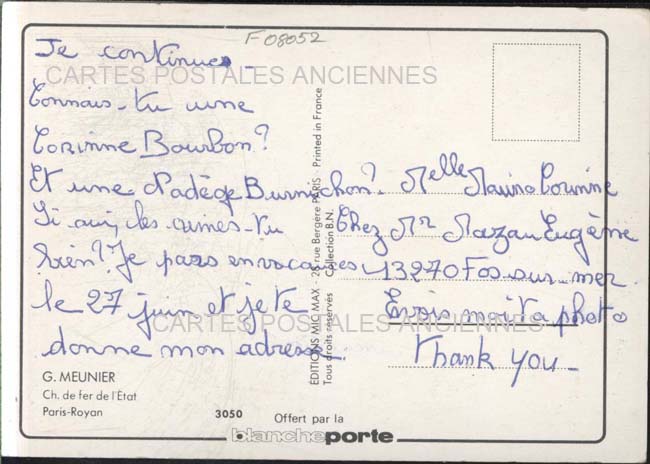 F08052
Je continue -
CARTES POSTALES ANCIENNES
Connais-tu une
Corinne Bourbon?
Et une Nadège Burnichon?
Si oui, les aimes-tu
bien? Je pars en vacances
le 27 juin et je te
donne mon adresse.
Melle Corinne
Chez Mr Mazau Eugène
13270 Fos-sur-mer
Envois moi ta photo
Thank you -
CARTES POSTALES ANCIENNES
EDITIONS MIC MAX - 28 rue Bergère PARIS - Printed in France
Tous droits réservés Collection B.N.
G. MEUNIER
Ch. de fer de l'État
Paris-Royan
3050
Offert par la
blancheporte